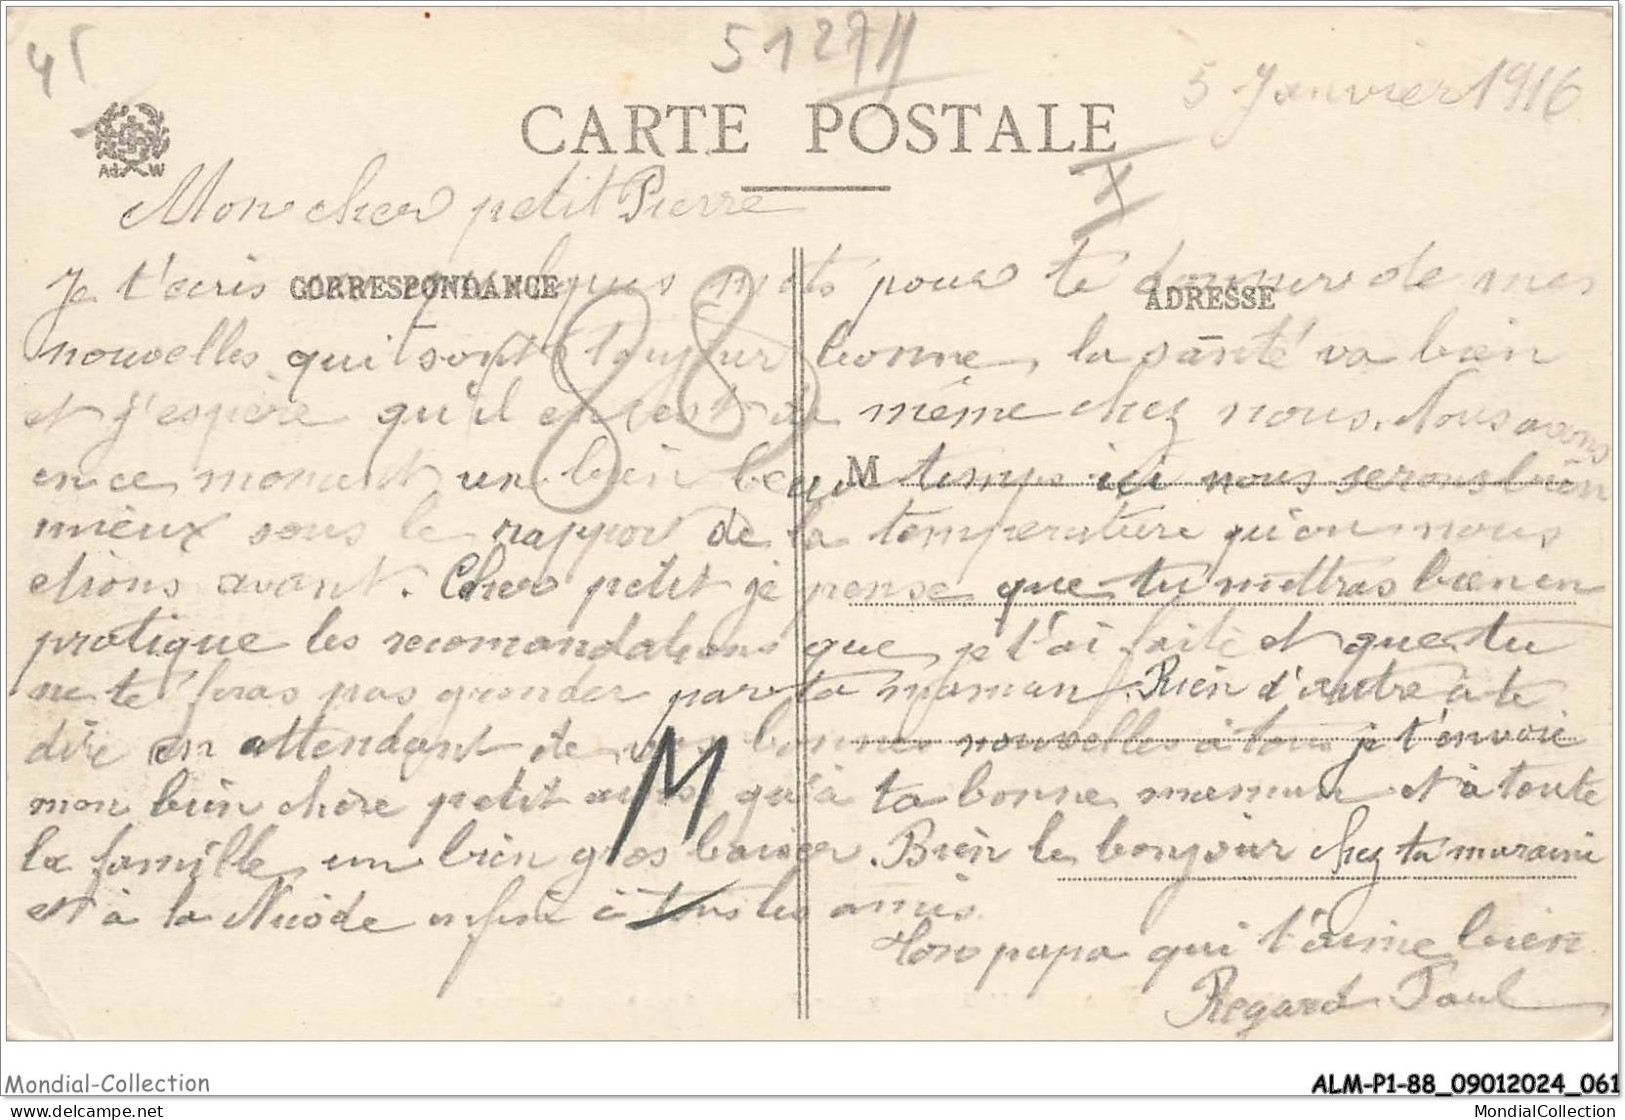 45
51274
5 Janvier 1916
CARTE POSTALE
Ad. W
X
Mon cher petit Pierre
CORRESPONDANCE
ADRESSE
Je t'ecris quelques mots pour te donner de mes
nouvelles qui sont toujour bonne, la santé va bien
et j'espère qu'il en est de même chez nous. Nous avons
88
M
en ce moment un bien beau temps ici nous serons bien
mieux sous le rappor de la temperature qu'on nous
etions avant. Cher petit je pense que tu mettras bien en
pratique les recomandations que je t'ai faite et que tu
ne te feras pas gronder par ta maman. Rien d'autre a te
dire en attendant de vos bonnes nouvelles à tous je t'envoie
M
mon bien chère petit ainsi qu'à ta bonne maman et à toute
la famille un bien gros baiser. Bien le bonjour chez ta maraine
et à la enfin à tous les amis
Ton papa qui t'aime bien
Regard Paul
Mondial-Collection
ALM-P1-88_09012024_061
delcampe.net
MondialCollection